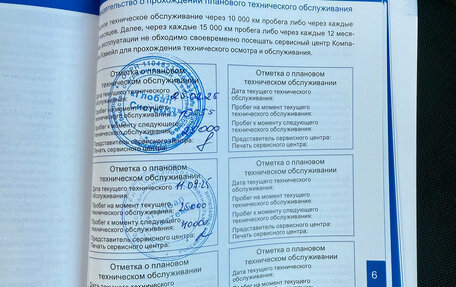 о прохождении планового технического обслуживания
техническое обслуживание через 10 000 км пробега либо через каждые
Далее, через каждые 15 000 км пробега либо через каждые 12 меся-
эксплуатации не обходимо своевременно посещать сервисный центр Компа-
для прохождения технического осмотра и обслуживания.
Отметка о плановом
техническом обслуживании
Дата текущего технического
обслуживания: 25.02.25
Пробег на момент текущего
обслуживания:
Пробег к моменту следующего
обслуживания:
Представитель сервисного центра:
Печать сервисного центра:
"Глобал
Отметка о плановом
техническом обслуживании
Дата текущего технического
обслуживания:
Пробег на момент текущего
обслуживания:
Пробег к моменту следующего
обслуживания:
Представитель сервисного центра:
Печать сервисного центра:
Отметка о плановом
техническом обслуживании
Дата текущего технического
обслуживания: 11.09.25
Пробег на момент текущего
обслуживания: 25000
Пробег к моменту следующего
обслуживания: 40000
Представитель сервисного центра:
Печать сервисного центра:
Отметка о плановом
техническом обслуживании
Дата текущего технического
обслуживания:
Пробег на момент текущего
обслуживания:
Пробег к моменту следующего
обслуживания:
Представитель сервисного центра:
Печать сервисного центра:
Отметка о плановом
техническом обслуживании
Дата текущего технического
обслуживания:
Пробег на момент текущего
Отметка о плановом
техническом обслуживании
Дата текущего технического
обслуживания:
Пробег на момент текущего
обслуживания:
6